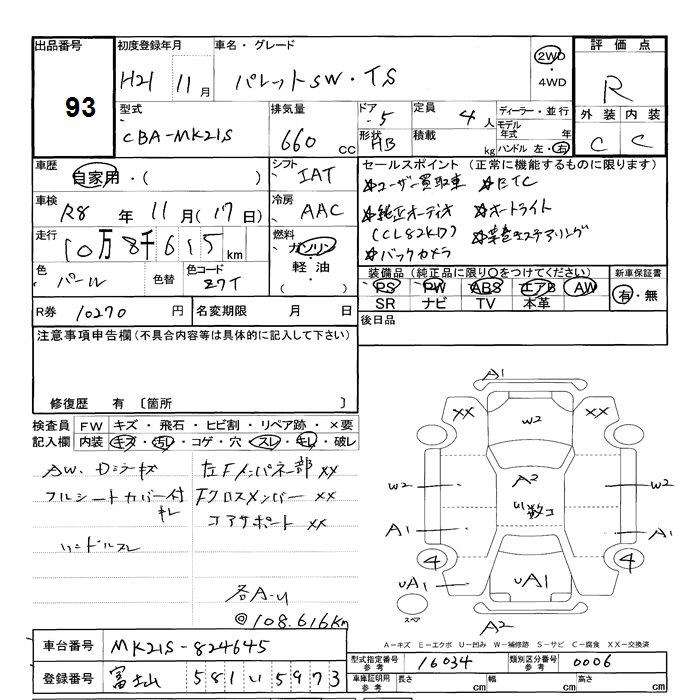 出品番号 初度登録年月 車名・グレード 評価点
93 H21 11月 パレットSW・TS 2WD・4WD R
外装 内装
C C
型式 排気量 ドア 定員 ディーラー・並行
CBA-MK21S 660 cc 5 4人 モデル年式 年
形状 HB 積載 kg ハンドル 左・右
車歴 自家用・( ) シフト IAT
セールスポイント(正常に機能するものに限ります)
☆ユーザー買取車 ☆ETC
車検 R8年 11月(17)日 冷房 AAC
☆純正オーディオ ☆オートライト
(CL82KD) ☆革巻きステアリング
☆バックカメラ
走行 10万8千615km 燃料 ガソリン・軽油・( )
色 パール 色替 色コード Z7T
装備品(純品に限り○をつけてください) 新車保証書
PS PW ABS エアB AW 有・無
SR ナビ TV 本革
R券 10270円 名変期限 月 日 後日品
注意事項申告欄(不具合内容等は具体的に記入して下さい)
修復歴 有 〔箇所 〕
検査員記入欄 FW キズ・飛石・ヒビ割・リペア跡・×要
内装 キズ・汚レ・コゲ・穴・スレ・キレ・破レ
AW. ロジキズ 左Fメンバネ部 XX
フルシートカバー付 Fクロスメンバー XX
キレ コアサポート XX
ハンドルスレ
各A-U
@108.616Km
A1
XX XX
W2
W2 A2 W2
U数コ
A1 A1
4 4
UA1 UA1
スペア A2
A-キズ E-エクボ U-凹み W-補修跡 S-サビ C-腐食 XX-交換済
車台番号 MK21S-824645
型式指定番号 参考 16034 類別区分番号 参考 0006
登録番号 富士山 581 い 5973
車庫証明用 参考 長さ cm 幅 cm 高さ cm